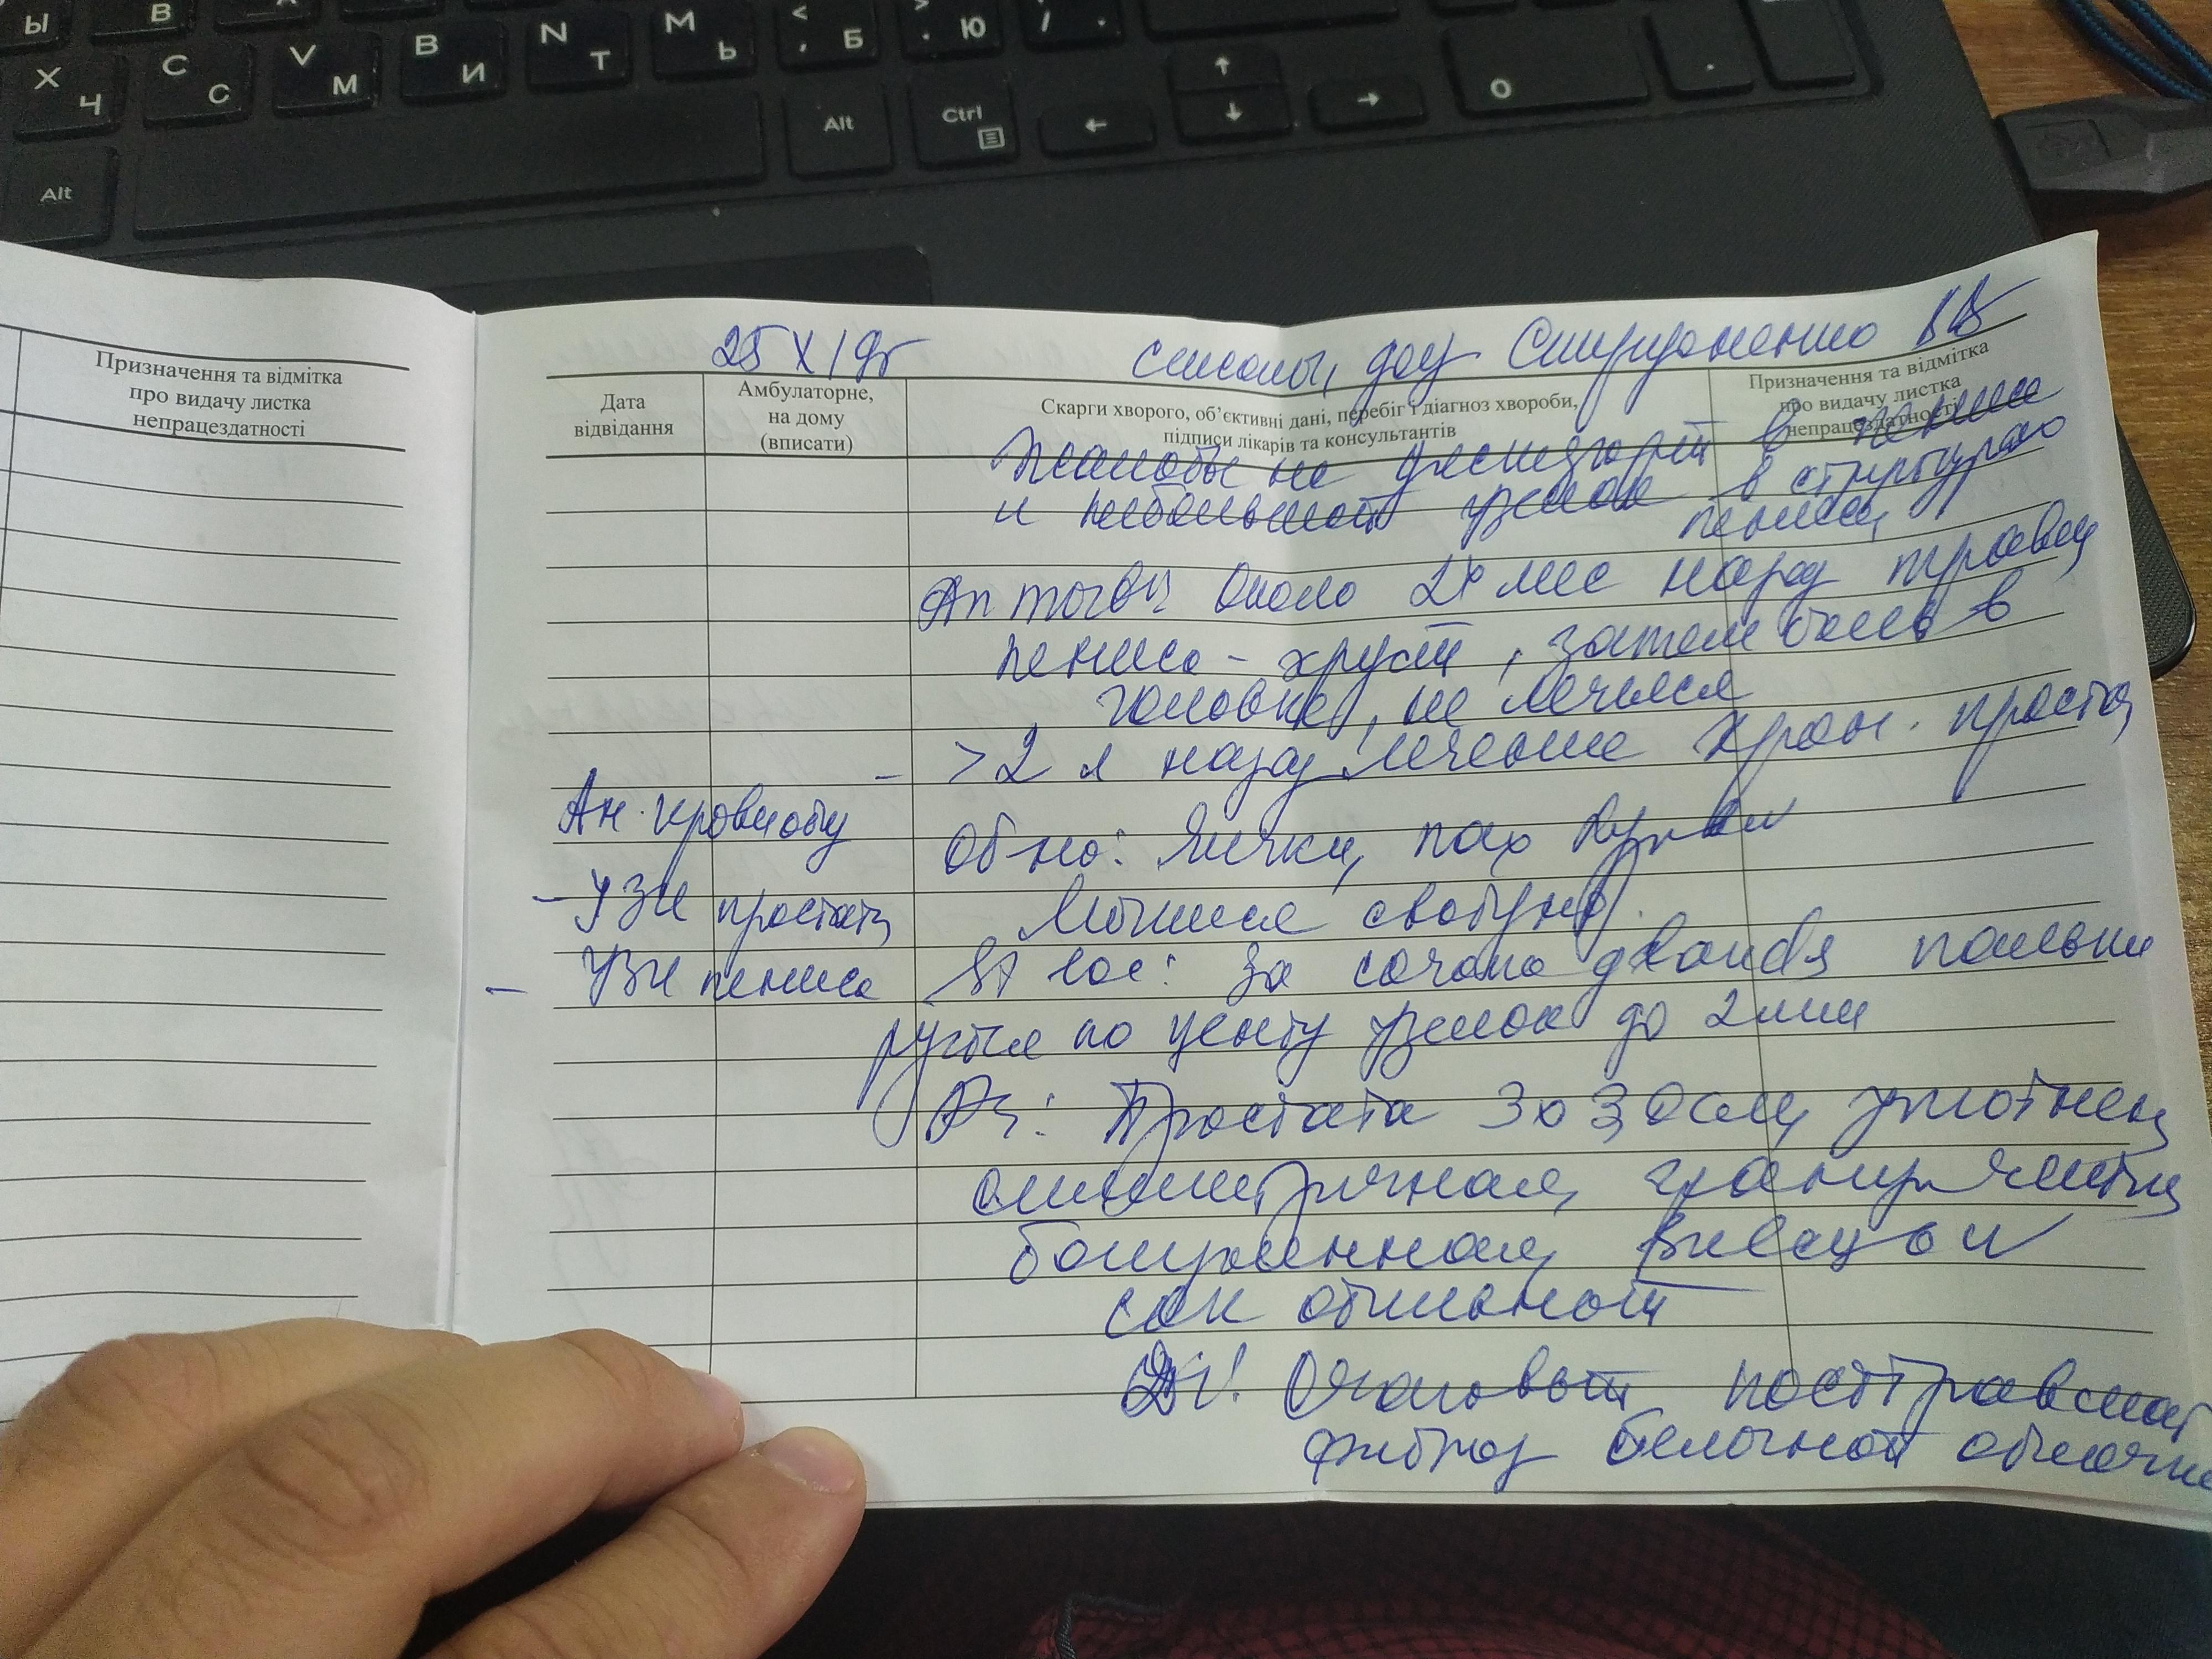 Ы В
Х Ч С С V М В И N Т М Ь < , Б > . Ю / .
Alt Alt Ctrl ← ↑ ↓ → 0 .
25 X 19г
Призначення та відмітка
про видачу листка
непрацездатності
Дата
відвідання
Амбулаторне,
на дому
(вписати)
Скарги хворого, об’єктивні дані, перебіг і діагноз хвороби,
підписи лікарів та консультантів
Призначення та відмітка
про видачу листка
непрацездатності
Жалобы на дискомфорт в пенисе
и небольшой узелок в структуре
пениса
около 2х мес назад травма
пениса - хруст, затем боль в
головке, не лечился
- > 2 л назад лечение хрон. проста
Ан. крови общ
Об-но: Яички, пах
- УЗИ простаты
Мочится свободно.
- УЗИ пениса
St loc: за
по центу узелок до 2 мм
Pr: Простата 3 х 3,0 см, уплотнена
симметричная,
болезненная,
сок обильный
DS: Очаговый посттравмат
фиброз белочной оболочки